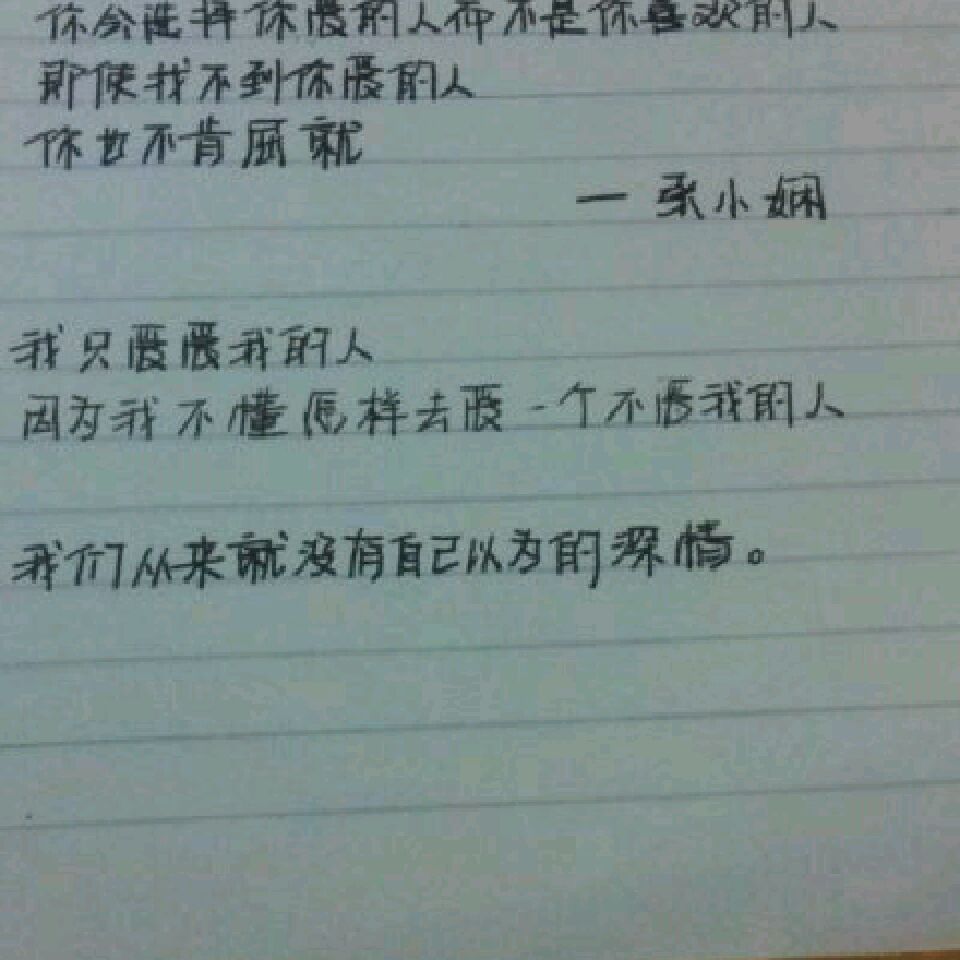 你会选择你爱的人而不是你喜欢的人
那使找不到你爱的人
你也不肯屈就
— 张小娴
我只爱爱我的人
因为我不懂怎样去爱一个不爱我的人
我们从来就没有自己以为的深情。